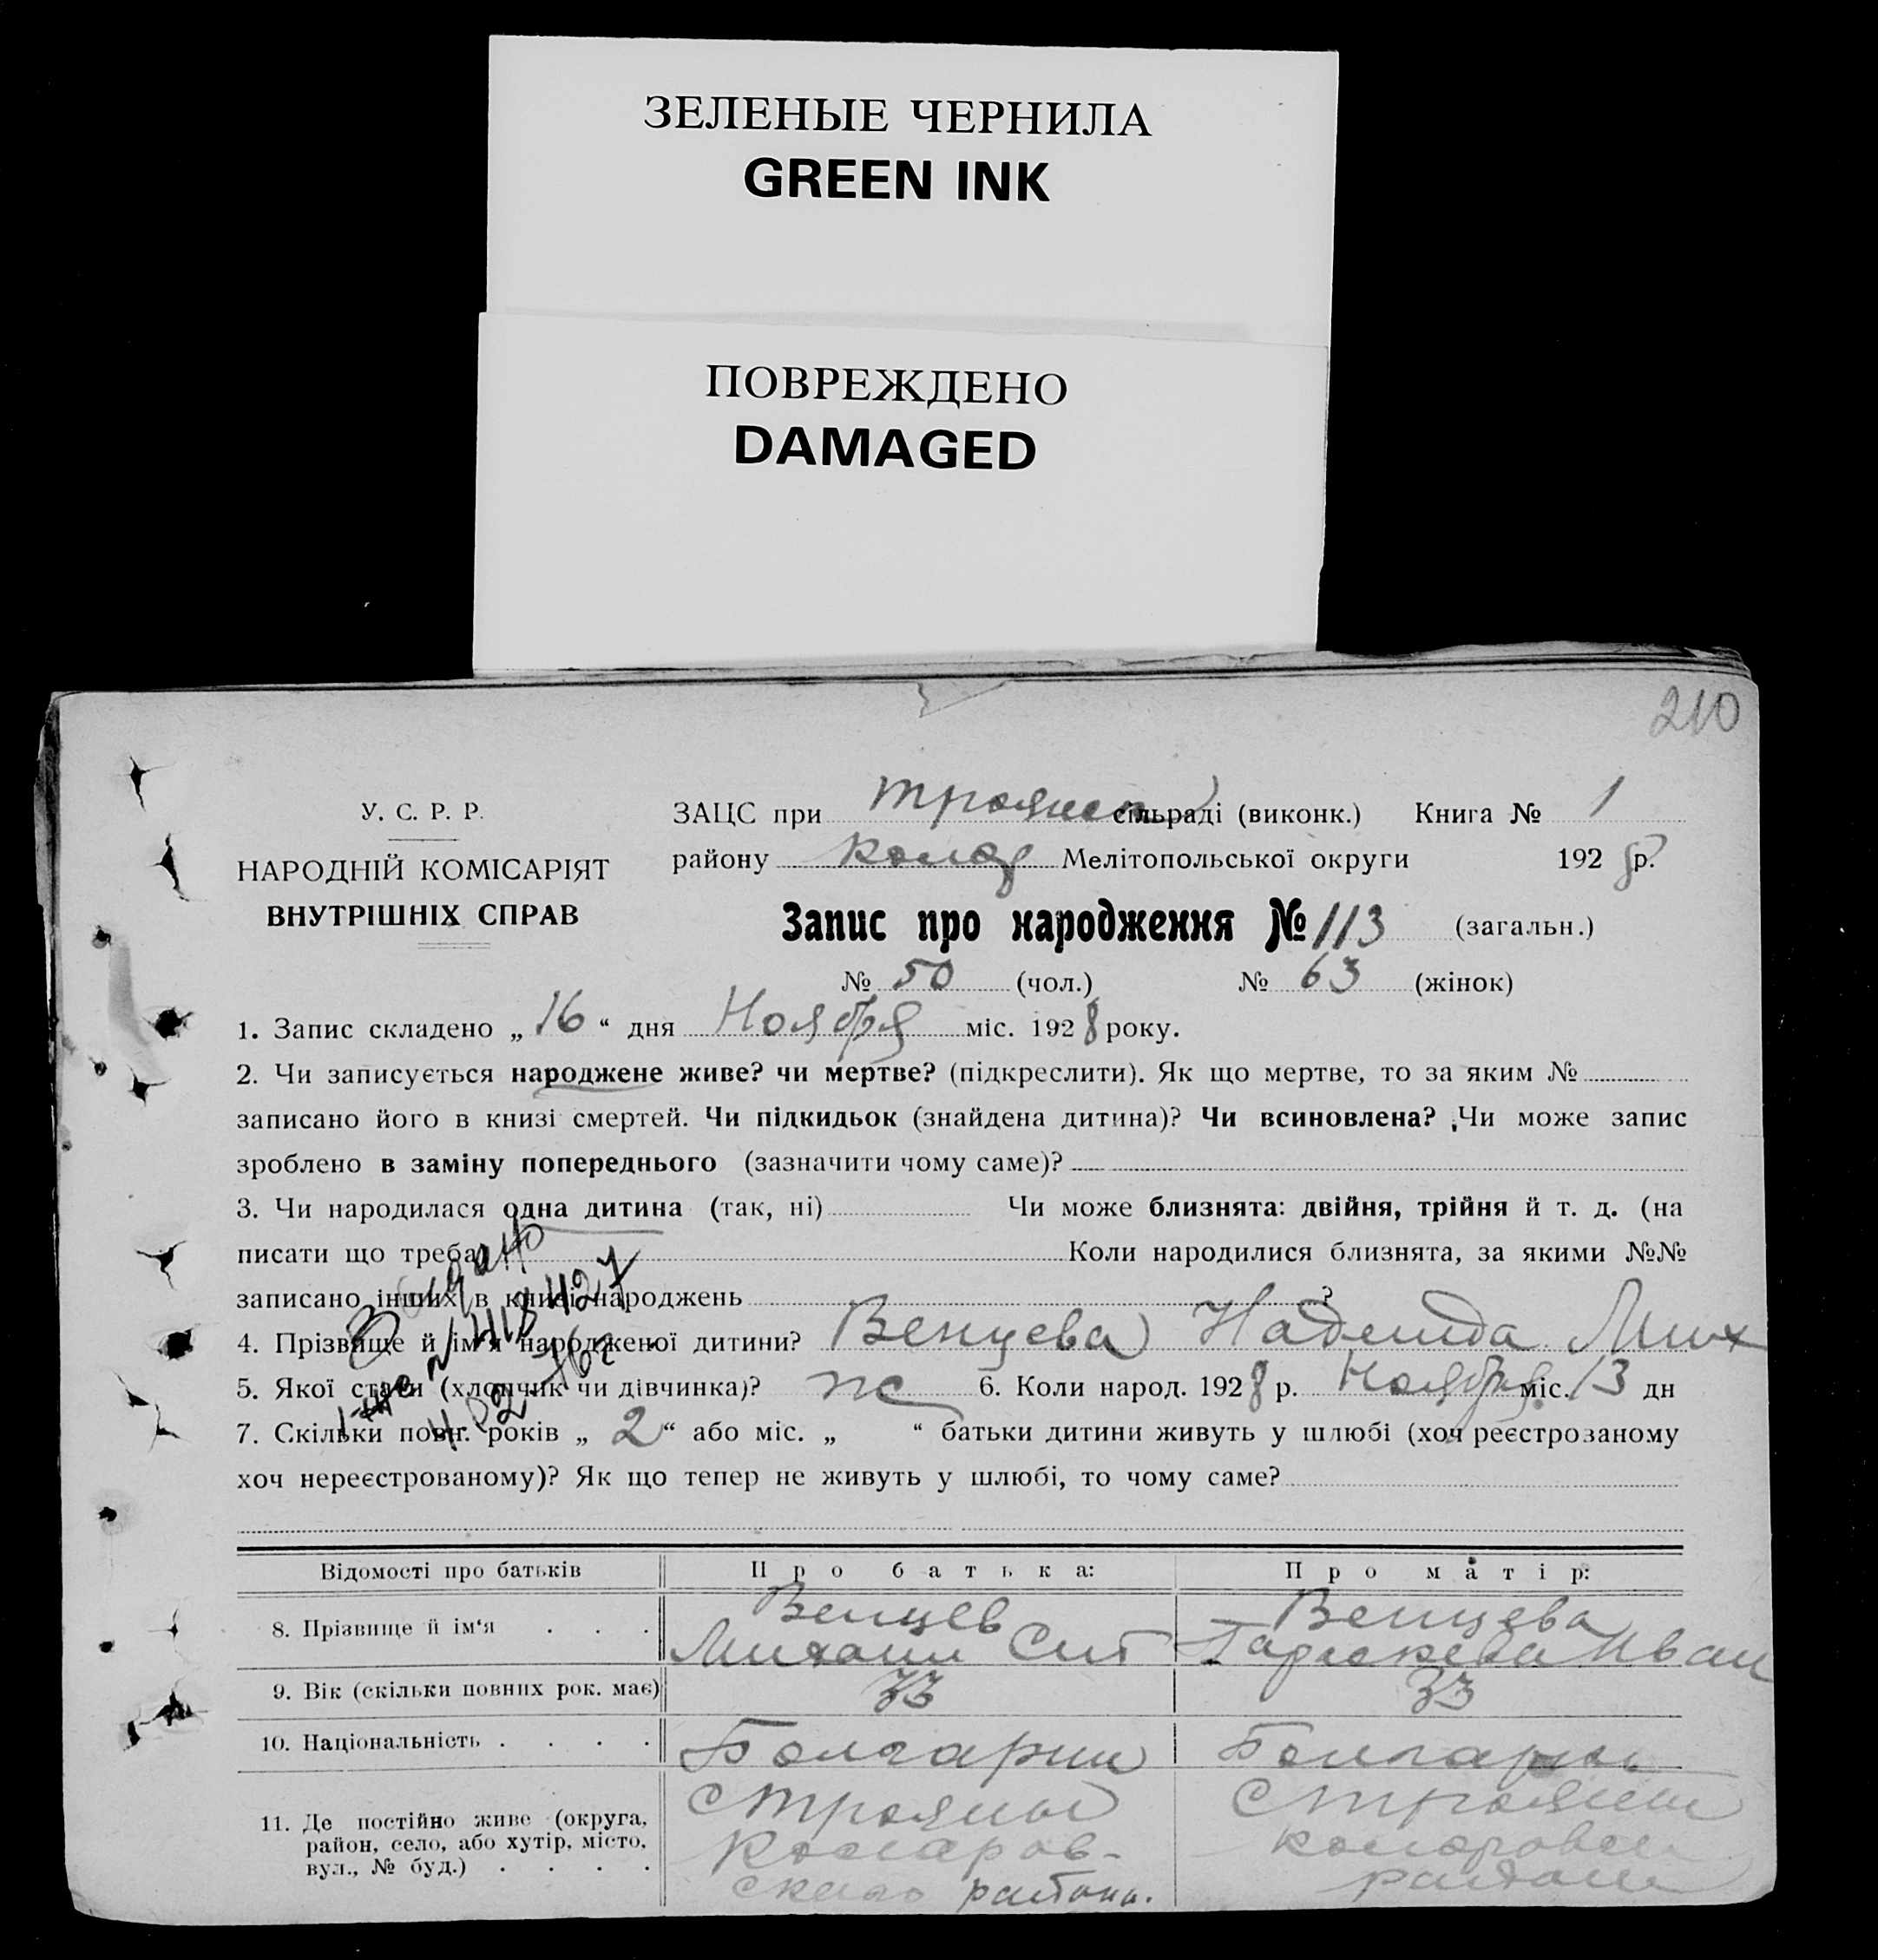 ЗЕЛЕНЫЕ ЧЕРНИЛА
GREEN INK
ПОВРЕЖДЕНО
DAMAGED
210
У. С. Р. Р.
НАРОДНІЙ КОМІСАРІЯТ
ВНУТРІШНІХ СПРАВ
ЗАЦС при Троянск сільраді (виконк.) Книга № 1
району Колар Мелітопольської округи 1928 р.
Запис про народження № 113 (загальн.)
№ 50 (чол.) № 63 (жінок)
1. Запис складено „ 16 “ дня Ноября міс. 1928 року.
2. Чи записується народжене живе? чи мертве? (підкреслити). Як що мертве, то за яким №
записано його в книзі смертей. Чи підкидьок (знайдена дитина)? Чи всиновлена? Чи може запис
зроблено в заміну попереднього (зазначити чому саме)?
3. Чи народилася одна дитина (так, ні) Чи може близнята: двійня, трійня й т. д. (на
писати що треба)
Коли народилися близнята, за якими №№
записано інших в книзі народжень ?
4. Прізвище й ім'я народженої дитини? Венцева Надежда Мих
5. Якої стати (хлопчик чи дівчинка)? ж 6. Коли народ. 1928 р. Ноября міс. 13 дн
7. Скільки повн. років „ 2 “ або міс. „ “ батьки дитини живуть у шлюбі (хоч реєстрованому
хоч нереєстрованому)? Як що тепер не живуть у шлюбі, то чому саме?
Відомості про батьків Про батька: Про матір:
8. Прізвище й ім'я . . . Венцев Венцева
Михаил Иван
9. Вік (скільки повних рок. має) 33 33
10. Національність . . . . Болгарин Болгарка
11. Де постійно живе (округа,
район, село, або хутір, місто,
вул., № буд.) . . . .
С Трояны
Коларов-
ского района.
С Трояны
Коларовск
района